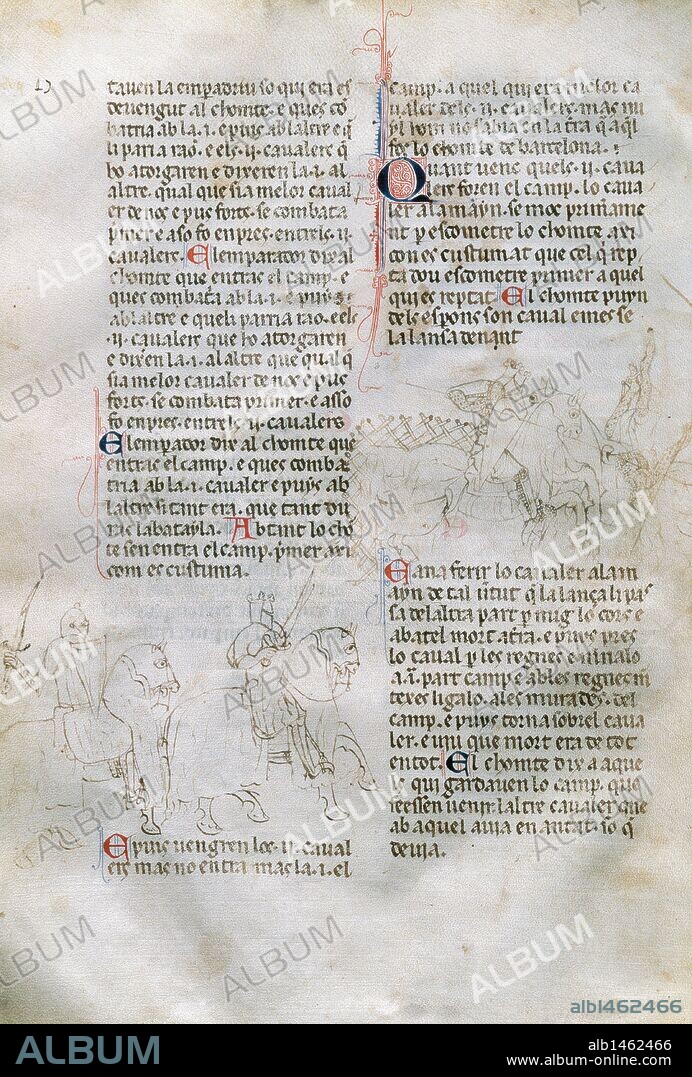 tauen la emperadriu so qui era es
deuengut al chomte · e ques cō
batria ab la · i · e puys ab laltre e q̄
li paria rao · e els · ii · caualers q̄
ho atorgaren e dixeren la · i · al
altre · qual que sia melor caual
er de nos e pus forts · se combata
p̄mer e aso fo en pres · entrels · ii ·
caualers · El emparador dix al
chomte que entras el camp · e
ques combata ab la · i · e puys
ab laltre e quel i parria rao · e els
· ii · caualers que ho atorgaren
e dixeren la · i · al altre que qual q̄
sia melor caualer de nos e pus
forts · se combata primer · e asso
fo en pres · entrels · ii · caualers
El emperador dix al chomte que
entras el camp · e ques combat̄
tria ab la · i · caualer e puys ab
laltre si tant era · que tant du
ras la batayla · Ab tant lo chō
te sen entra el camp · p̄mer axi
com es custuma ·
E puys uengren los · ii · caual
ers mas no entra mas la · i · el
camp · aquel qui era melor ca
ualer dels · ii · caualers · mas nu
yl hom no sabia en la t̄ra q̄ aq̄l
fos lo chomte de barcelona ·
Quant uenc quels · ii · caua
lers foren el camp · lo caua
ler alamayn · se moc primame
nt p escometre lo chomte · axi
con es custumat que cel q̄ rep
ta dou escometre primer a quel
qui es reptat · El chomte puyn
dels esperons son caual e mes se
la lansa denant
E ana ferir lo caualer alam
ayn de tal uirtut q̄ la lança li pa
sa delaltra part p mig lo cors e
abatel mort a t̄ra · e puys pres
lo caual p les regnes e menalo
a · i · part camp e ab les regnes m̄
texes ligalo · a les murades · del
camp · e puys torna sobrel caua
ler · e uiu que mort era de tot
en tot · El chomte dix a aque
ls qui gardauen lo camp · que
feessen uenir laltre caualer que
ab aquel auia en antat · so q̄
deuia ·
ALBUM
alb1462466
ALBUM
alb1462466
www.album-online.com